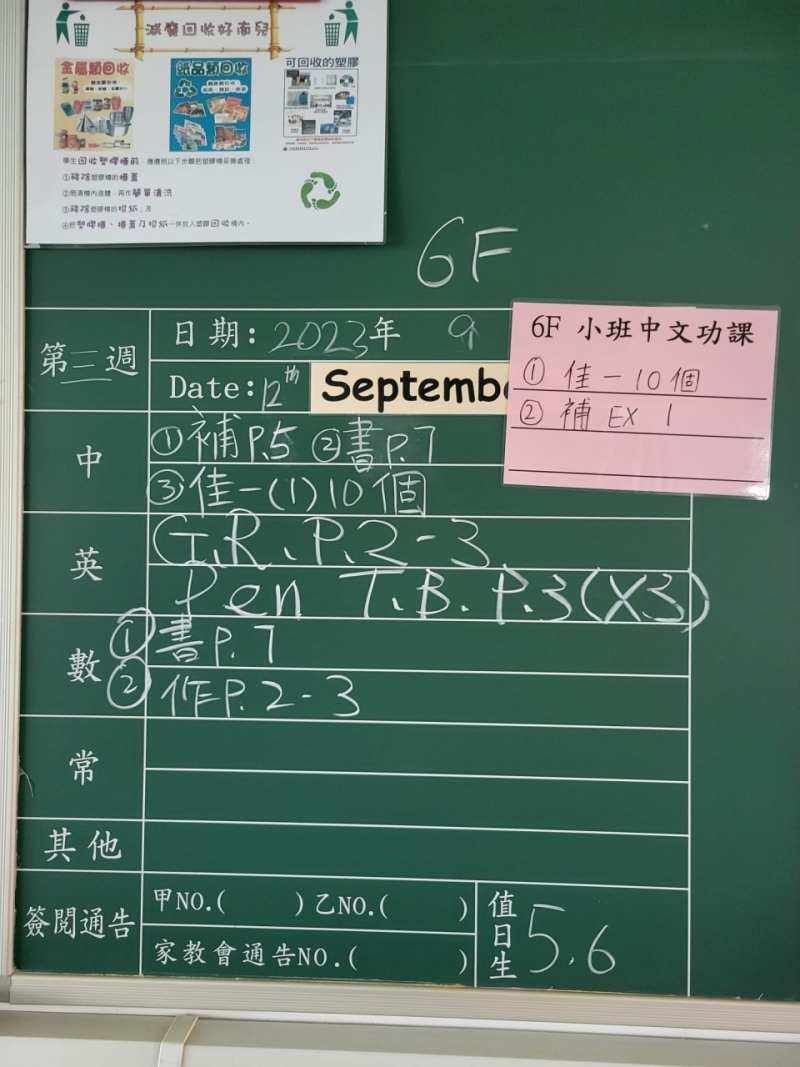 減廢回收好市兒
金屬類回收
紙品類回收
可回收的塑膠
學生回收塑膠樽前，應遵照以下步驟把塑膠樽妥善處理：
①移除塑膠樽的樽蓋
②倒清樽內液體，再作簡單清洗
③移除塑膠樽的招紙；及
④把塑膠樽、樽蓋及招紙一併放入塑膠回收桶內。
6F
第三週
日期：2023年 9
Date: 12th Septemb
6F 小班中文功課
① 佳一 10個
② 補 EX 1
中
①補P.5 ②書P.7
③佳一(1)10個
英
G.R. P.2-3
Pen T.B. P.3(X3)
數
①書P.7
②作P.2-3
常
其他
簽閱通告
甲NO.( ) 乙NO.( )
家教會通告NO.( )
值日生 5.6